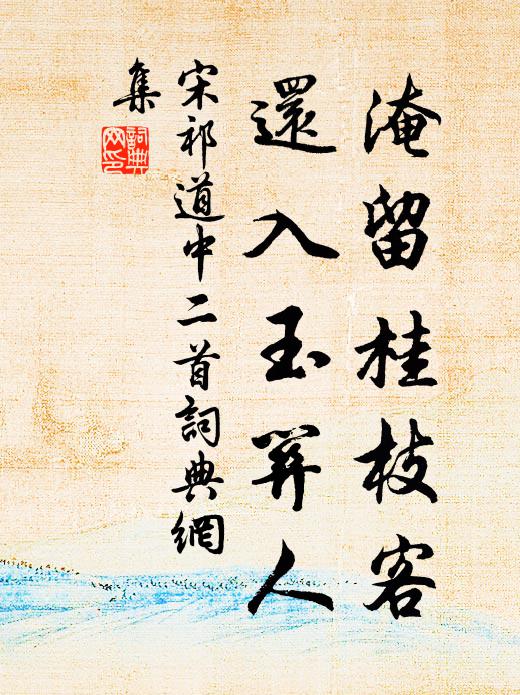 淹留桂枝客
還入玉笄人
宋祁道中二首詞典網
集
詞典
网印